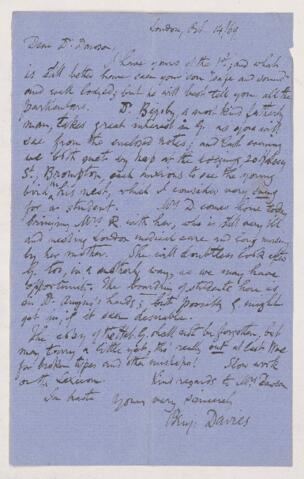 London, Oct. 14/69
Dear Dr. Dawson,
I have yours of the 1st; and what
is still better have seen your son "safe and sound"
and well lodged; but he will best tell you all the
particulars. Dr. Bigsby, a most kind fatherly
man, takes great interest in G. as you will
see from the enclosed notes; and last evening
we both quite by hap at the lodging 20
St., Brompton, each anxious to see the young
bird in his nest, which I consider very snug
for a student. Mrs D comes home today
bringing Mrs R with her, who is still very ill
and needing London medical care and long nursing
by her mother. She will doubtless look after
G. too, in a motherly way, as we may have
opportunity. The boarding of students here is
in Dr. Angus's hands; but possibly G. might
get in, if it seem desirable.
The copy of the Heb. G. shall not be forgotten, but
may tarry a little yet, tho' really out at last save
for broken types and other mishaps! Slow work
on the Lexicon. Kind regards to Mrs Dawson
In haste Yours very sincerely
Benj. Davies